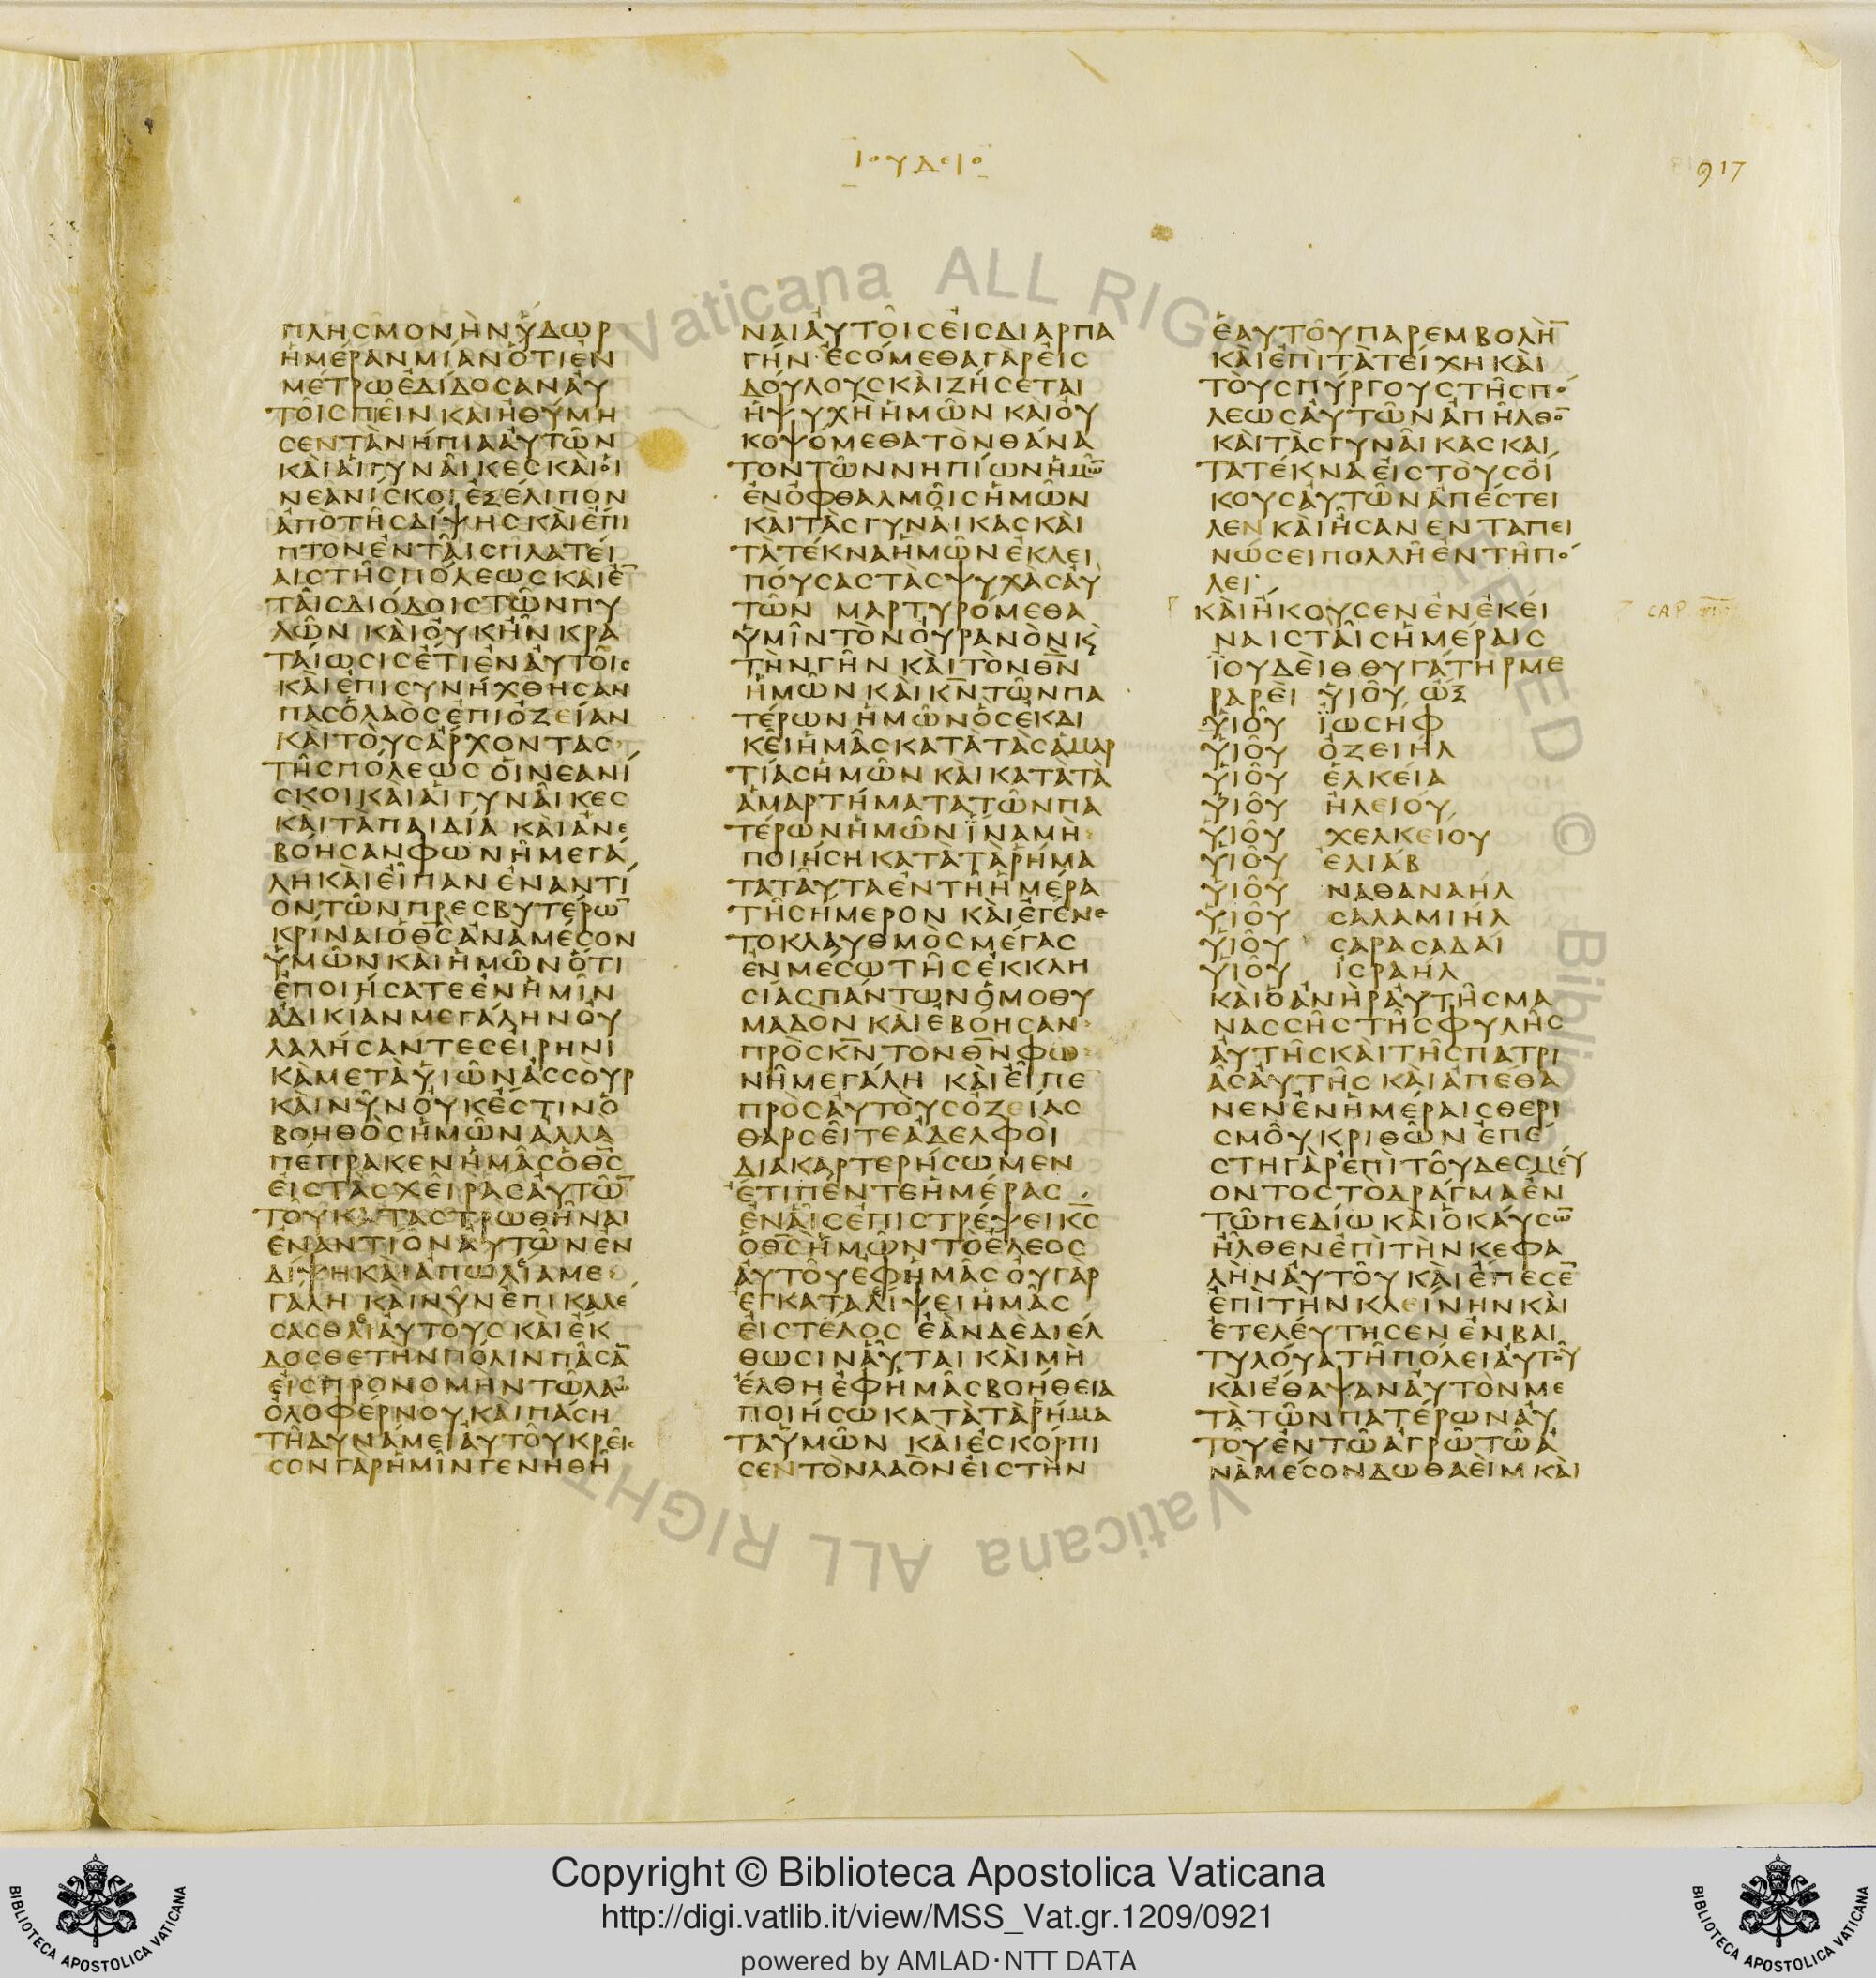 ΙΟΥΔΕΙΘ
917
ΠΛΗϹΜΟΝῊΝὝΔΩΡ
ἩΜΈΡΑΝΜΊΑΝὍΤΙἘΝ
ΜΈΤΡΩἘΔΊΔΟϹΑΝΑΥ
ΤΟΙ͂ϹΠΕΙ͂ΝΚΑῚἨΘΎΜΗ
ϹΕΝΤᾺΝΉΠΙΑΑΥΤΩ͂Ν
ΚΑῚΑἹΓΥΝΑΙ͂ΚΕϹΚΑῚΟἹ
ΝΕΑΝΊϹΚΟΙἘΞΈΛΙΠΟΝ
ἈΠῸΤΗ͂ϹΔΊΨΗϹΚΑῚἘΠΙ
ΠΤΟΝἘΝΤΑΙ͂ϹΠΛΑΤΕΊ
ΑΙϹΤΗ͂ϹΠΌΛΕΩϹΚΑῚἘ̅
ΤΑΙ͂ϹΔΙΌΔΟΙϹΤΩ͂ΝΠΥ
ΛΩ͂Ν ΚΑῚΟΥ̓ΚΗ͂ΝΚΡΑ
ΤΑΊΩϹΙϹἜΤΙἘΝΑΥ̓ΤΟΙ͂Ϲ
ΚΑῚἘΠΙϹΥΝΉΧΘΗϹΑΝ
ΠΑϹὉΛΑῸϹἘΠῚὈΖΕΊΑΝ
ΚΑῚΤΟῪϹἌΡΧΟΝΤΑϹ
ΤΗ͂ϹΠΌΛΕΩϹ ΟἹΝΕΑΝΊ
ϹΚΟΙΚΑῚΑἹΓΥΝΑΙ͂ΚΕϹ
ΚΑῚΤᾺΠΑΙΔΊΑ ΚΑῚἈΝΕ
ΒΌΗϹΑΝΦΩΝΗ͂ΜΕΓΆ
ΛΗΚΑῚΕἾΠΑΝἘΝΑΝΤΊ
ΟΝΤΩ͂ΝΠΡΕϹΒΥΤΈΡΩ̅
ΚΡΊΝΑΙὉΘ̅Ϲ̅ἈΝΑΜΈϹΟΝ
ὙΜΩ͂ΝΚΑῚἩΜΩ͂ΝὍΤΙ
ἘΠΟΙΉϹΑΤΕἘΝἩΜΙ͂Ν
ἈΔΙΚΊΑΝΜΕΓΆΛΗΝΟΥ̓
ΛΑΛΉϹΑΝΤΕϹΕἸΡΗΝΙ
ΚᾺΜΕΤᾺΥἹΩ͂ΝἈϹϹΟῪΡ
ΚΑῚΝΥ͂ΝΟΥ̓ΚἜϹΤΙΝὉ
ΒΟΗΘῸϹἩΜΩ͂ΝἈΛΛᾺ
ΠΈΠΡΑΚΕΝἩΜΑ͂ϹὉΘ̅Ϲ̅
ΕἸϹΤᾺϹΧΕΙ͂ΡΑϹΑΥ̓ΤΩ̅
ΤΟΥΚΑΤΑϹΤΡΩΘΗ͂ΝΑΙ
ἘΝΑΝΤΊΟΝΑΥ̓ΤΩ͂ΝἘΝ
ΔΊΨΗΚΑῚἈΠΩΛΕΊΑΜΕ
ΓΆΛΗ ΚΑῚΝΥ͂ΝἘΠΙΚΑΛΈ
ϹΑϹΘΑΙΑΥ̓ΤΟῪϹ ΚΑῚἘΚ
ΔΟϹΘΕΤῊΝΠΌΛΙΝΠΑ͂ϹΑ̅
ΕἸϹΠΡΟΝΟΜῊΝΤΩ͂ΛΑΩ
ὈΛΟΦΈΡΝΟΥΚΑῚΠΆϹΗ
ΤΗ͂ΔΥΝΆΜΕΙΑΥ̓ΤΟΥ͂ΚΡΕΙ͂Ϲ
ϹΟΝΓᾺΡἩΜΙ͂ΝΓΕΝΗΘΗ͂
ΝΑΙΑΥ̓ΤΟΙ͂ϹΕἸϹΔΙΑΡΠΑ
ΓΉΝ·ἘϹΌΜΕΘΑΓᾺΡΕἸϹ
ΔΟΎΛΟΥϹΚΑῚΖΉϹΕΤΑΙ
ἩΨΥΧῊἩΜΩ͂Ν ΚΑῚΟΥ̓
ΚΟΨΌΜΕΘΑΤῸΝΘΆΝΑ
ΤΟΝΤΩ͂ΝΝΗΠΊΩΝἩΜΩ̅
ἘΝὈΦΘΑΛΜΟΙ͂ϹἩΜΩ͂Ν
ΚΑῚΤᾺϹΓΥΝΑΙ͂ΚΑϹΚΑῚ
ΤᾺΤΈΚΝΑἩΜΩ͂ΝἘΚΛΕΙ
ΠΟΎϹΑϹΤᾺϹΨΥΧᾺϹΑΥ̓
ΤΩ͂Ν ΜΑΡΤΥΡΌΜΕΘΑ
ὙΜΙ͂ΝΤῸΝΟΥ̓ΡΑΝῸΝΚ̀
ΤῊΝΓΗ͂Ν ΚΑῚΤῸΝΘ̅Ν̅
ἩΜΩ͂Ν ΚΑῚΚ̅Ν̅ΤΩ͂ΝΠΑ
ΤΈΡΩΝἩΜΩ͂ΝὍϹἘΚΔΙ
ΚΕΙ͂ἩΜΑ͂ϹΚΑΤᾺΤᾺϹἉΜΑΡ
ΤΊΑϹἩΜΩ͂Ν ΚΑῚΚΑΤᾺΤᾺ
ἉΜΑΡΤΉΜΑΤΑΤΩ͂ΝΠΑ
ΤΈΡΩΝἩΜΩ͂Ν ἽΝΑΜῊ
ΠΟΙΉϹΗΚΑΤᾺΤᾺΡΉΜΑ
ΤΑΤΑΥ͂ΤΑἘΝΤΗ͂ἩΜΈΡΑ
ΤΗ͂ϹΉΜΕΡΟΝ ΚΑῚἘΓΈΝΕ
ΤΟΚΛΑΥΘΜῸϹΜΈΓΑϹ
ἘΝΜΈϹΩΤΗ͂ϹἘΚΚΛΗ
ϹΊΑϹΠΆΝΤΩΝὉΜΟΘΥ
ΜΑΔΟΝ ΚΑῚἘΒΌΗϹΑΝ
ΠΡῸϹΚ̅Ν̅ ΤῸΝΘ̅Ν̅ΦΩ
ΝΗ͂ΜΕΓΆΛΗ ΚΑῚΕἾΠΕ
ΠΡῸϹΑΥ̓ΤΟῪϹὈΖΕΊΑϹ
ΘΑΡϹΕΙ͂ΤΕἈΔΕΛΦΟῚ
ΔΙΑΚΑΡΤΕΡΉϹΩΜΕΝ
ἜΤΙΠΈΝΤΕἩΜΈΡΑϹ
ἘΝΑἿϹἘΠΙϹΤΡΈΨΕΙΚ̅Ϲ̅
ὉΘ̅Ϲ̅ἩΜΩ͂ΝΤῸἜΛΕΟϹ
ΑΥ̓ΤΟΥ͂ἘΦἩΜΑ͂Ϲ ΟΥ̓ΓᾺΡ
ἘΓΚΑΤΑΛΕΊΨΕΙἩΜΑ͂Ϲ
ΕἸϹΤΈΛΟϹ ἘᾺΝΔῈΔΙΈΛ
ΘΩϹΙΝΑΥ͂ΤΑΙ ΚΑῚΜῊ
ἜΛΘΗἘΦἩΜΑ͂ϹΒΟΉΘΕΙΑ
ΠΟΙΉϹΩΚΑΤᾺΤᾺΡΉΜΑ
ΤΑὙΜΩ͂Ν ΚΑῚἘϹΚΌΡΠΙ
ϹΕΝΤῸΝΛΑῸΝΕἸϹΤῊΝ
ἙΑΥΤΟΥ͂ΠΑΡΕΜΒΟΛῊ̅
ΚΑῚἘΠῚΤᾺΤΕΊΧΗΚΑῚ
ΤΟῪϹΠΎΡΓΟΥϹΤΗ͂ϹΠΌ
ΛΕΩϹΑΥ̓ΤΩ͂ΝἈΠΗ͂ΛΘΟ̅
ΚΑῚΤᾺϹΓΥΝΑΙ͂ΚΑϹΚΑΙ
ΤΑΤΈΚΝΑΕἸϹΤΟῪϹΟἼ
ΚΟΥϹΑΥ̓ΤΩ͂ΝἈΠΈϹΤΕΙ
ΛΕΝ ΚΑῚἮϹΑΝΕΝΤΑΠΕΙ
ΝΏϹΕΙΠΟΛΛΗ͂ἘΝΤΗ͂ΠΌ
ΛΕΙ·
ΚΑῚἬΚΟΥϹΕΝἘΝἘΚΕΊ
ΝΑΙϹΤΑΙ͂ϹἩΜΈΡΑΙϹ
ΪΟΥΔΕῚΘΘΥΓΆΤΗΡΜΕ
ΡΑΡΕῚ ΥἹΟΥ͂ ὨΞ
ΥἹΟΥ͂ ΪΩϹΗΦ
ΥἹΟΥ͂ ὈΖΕΙΉΛ
ΥἹΟΥ͂ ἘΛΚΕΊΑ
ΥἹΟΥ͂ ἨΛΕΙΟΎ
ΥἹΟΥ͂ ΧΕΛΚΕΊΟΥ
ΥἹΟΥ͂ ἘΛΙΆΒ
ΥἹΟΥ͂ ΝΑΘΑΝΑΉΛ
ΥἹΟΥ͂ ϹΑΛΑΜΙΉΛ
ΥἹΟΥ͂ ϹΑΡΑϹΑΔΑΊ
ΥἹΟΥ͂ ἸϹΡΑΉΛ
ΚΑῚὉἈΝῊΡΑΥ̓ΤΗ͂ϹΜΑ
ΝΑϹϹΗ͂ϹΤΗ͂ϹΦΥΛΗ͂Ϲ
ΑΥ̓ΤΗ͂ϹΚΑῚΤΗ͂ϹΠΑΤΡΙ
Α͂ϹΑΥ̓ΤΗ͂Ϲ ΚΑῚἈΠΈΘΑ
ΝΕΝἘΝἩΜΈΡΑΙϹΘΕΡΙ
ϹΜΟΥ͂ΚΡΙΘΩ͂Ν ἘΠΕ
ϹΤΗΓᾺΡἘΠῚΤΟΥ͂ΔΕϹΜΕΎ
ΟΝΤΟϹΤῸΔΡΆΓΜΑἘΝ
ΤΩ͂ΠΕΔΊΩΚΑῚὉΚΑΎϹΩ̅
ἮΛΘΕΝἘΠῚΤῊΝΚΕΦΑ
ΛῊΝΑΥ̓ΤΟΥ͂ΚΑῚἜΠΕϹΕ̅
ἘΠῚΤῊΝΚΛΕΊΝΗΝΚΑῚ
ἘΤΕΛΕΎΤΗϹΕΝ ἘΝΒΑΙ
ΤΥΛΟΎΑΤΗ͂ΠΌΛΕΙΑΥ̓ΤΟΥ͂
ΚΑῚἜΘΑΨΑΝΑΥ̓ΤῸΝΜΕ
ΤᾺΤΩ͂ΝΠΑΤΈΡΩΝΑΥ̓
ΤΟΥ͂ἘΝΤΩ͂ἈΓΡΩ͂ΤΩ͂Ἀ
ΝᾺΜΈϹΟΝΔΩΘΑΕῚΜΚΑῚ
CAP
Copyright © Biblioteca Apostolica Vaticana
http://digi.vatlib.it/view/MSS_Vat.gr.1209/0921
powered by AMLAD·NTT DATA
BIBLIOTECA APOSTOLICA VATICANA
BIBLIOTECA APOSTOLICA VATICANA